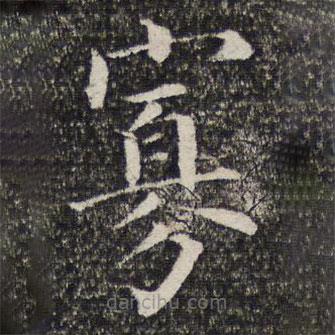 寡
dancihu.com